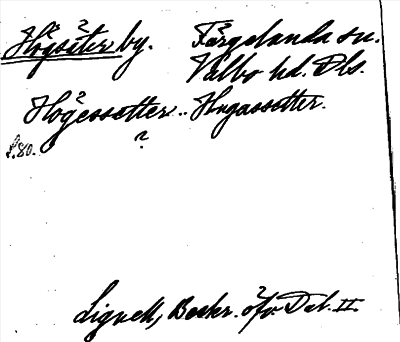 Högsäter by. Färgelanda sn.
Valbo hd. Dls.
Högessetter .. Hugassetter.
s. 80. ?
Lignell, Beskr. öfv. Dal. II.